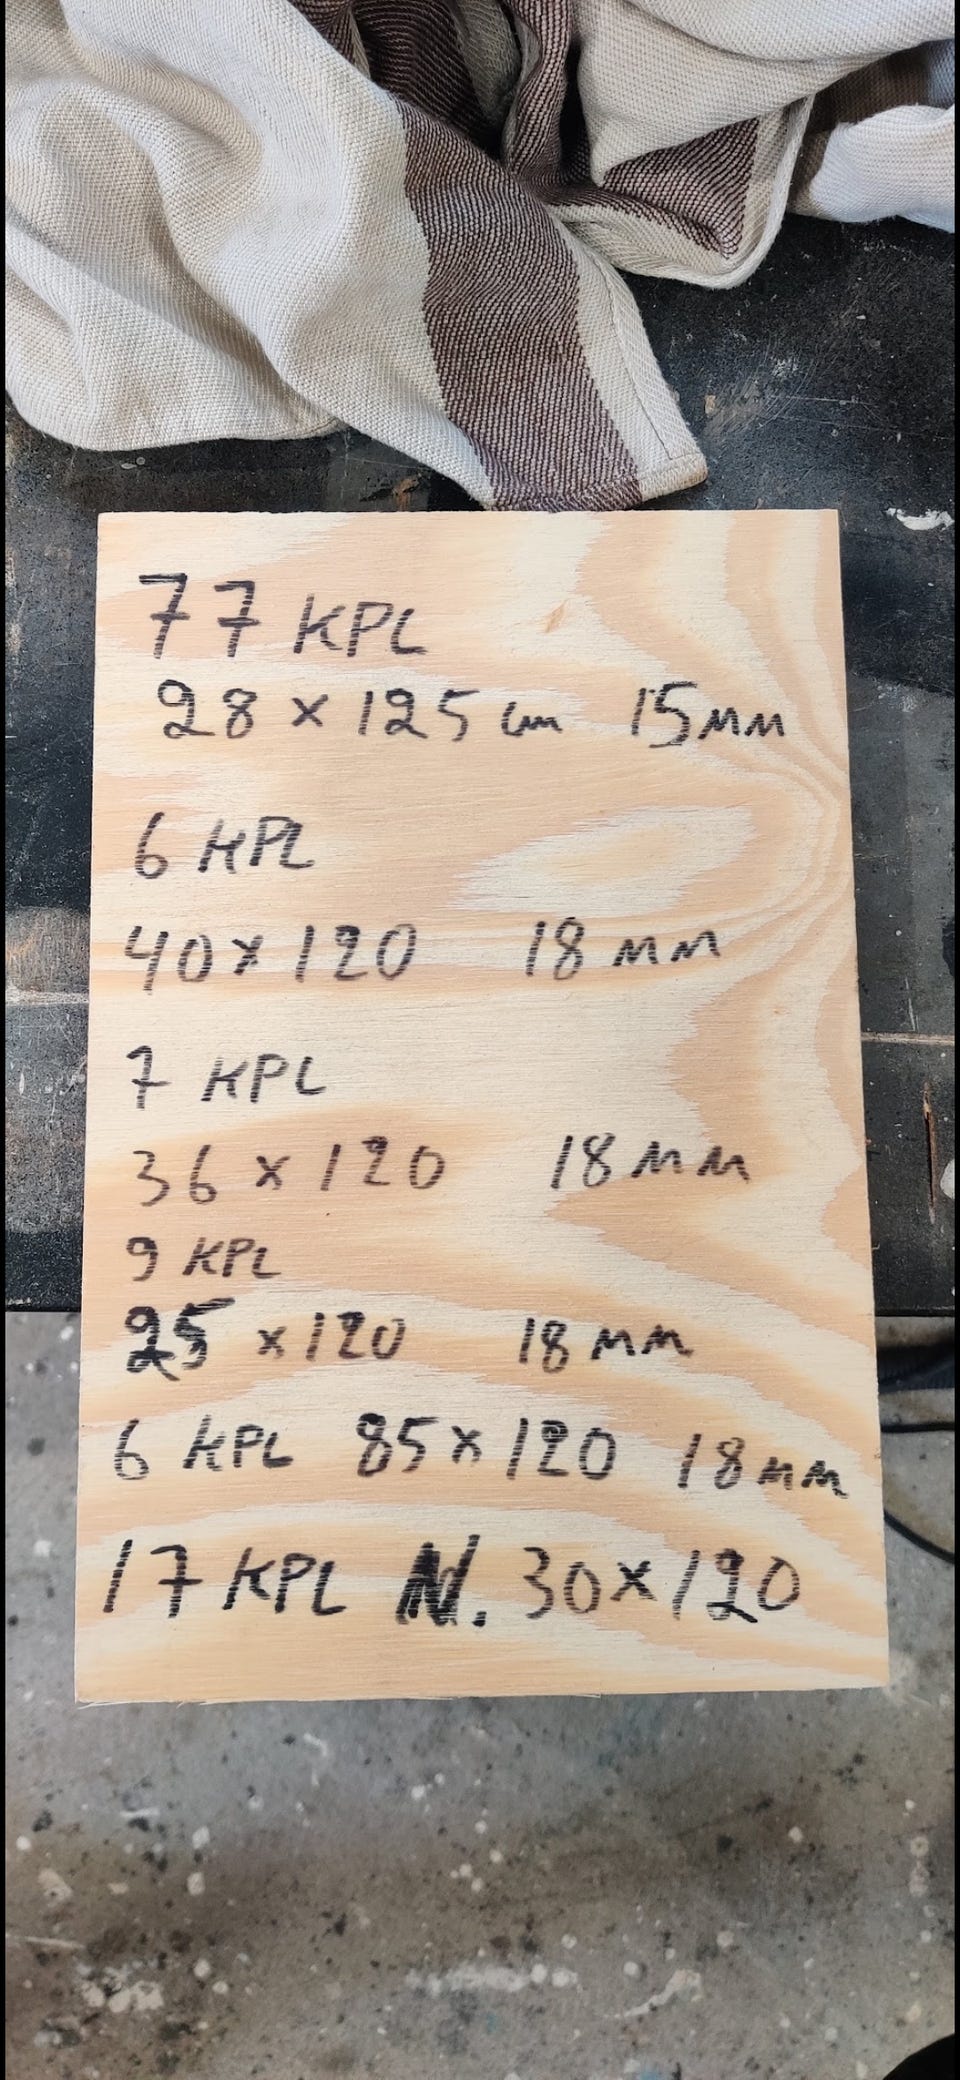 77 KPL
28 x 125 cm 15 mm
6 KPL
40 x 120 18 mm
7 KPL
36 x 120 18 mm
9 KPL
25 x 120 18 mm
6 KPL 85 x 120 18 mm
17 KPL N. 30 x 120